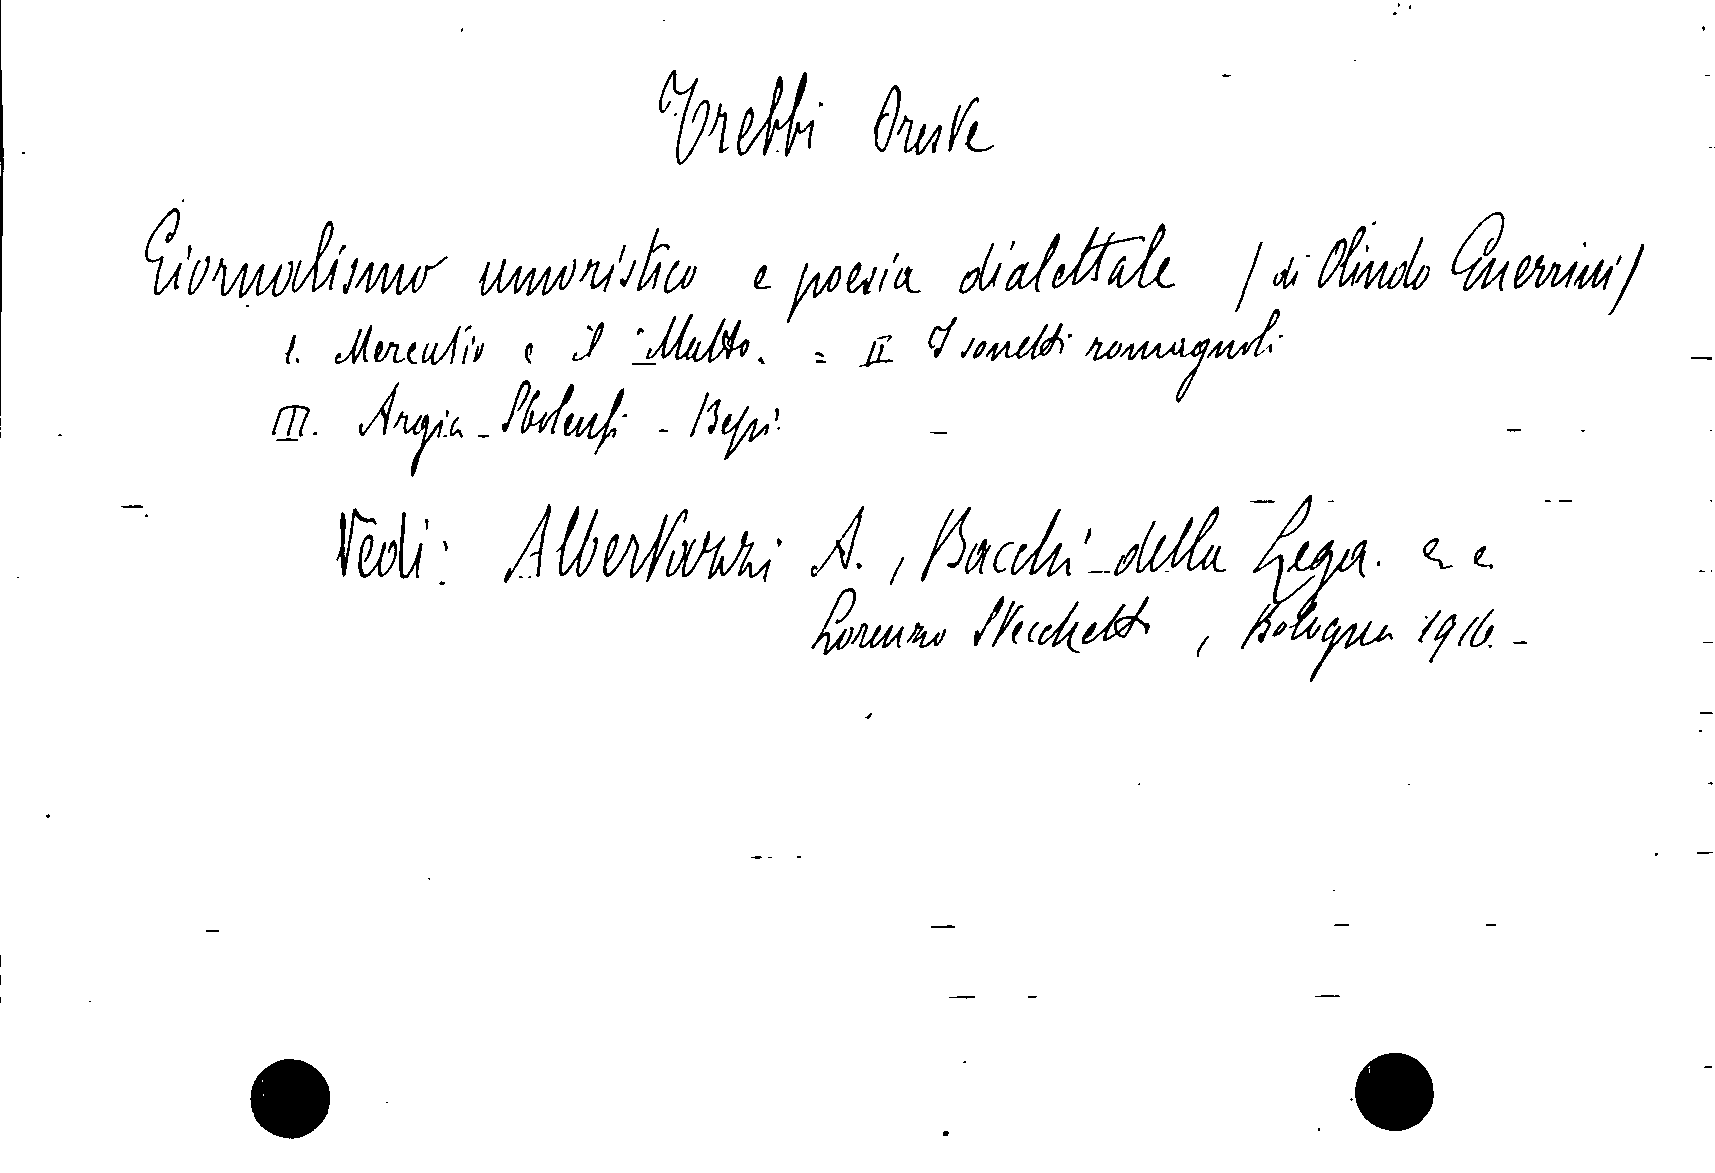 Trebbi Oreste
Giornalismo umoristico e poesia dialettale / di Olindo Guerrini /
I. Mercutio e il Matto. = II I sonetti romagnoli
III. Argia - Sbolenfi - Bepi.
Vedi: Albertazzi A., Bacchi-della Lega. ec.
Lorenzo Stecchetti, Bologna 1916. -